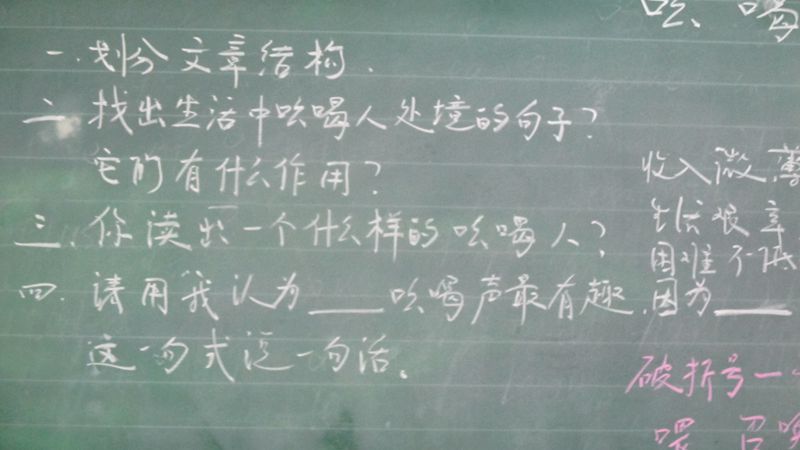 吆喝
一.划分文章结构.
二 找出生活中吆喝人处境的句子?
它们有什么作用?
三.你读出一个什么样的吆喝人?
四.请用我认为___吆喝声最有趣,因为___
这一句式说一句话。
收入微薄
生活艰辛
困难不低
破折号一
喂 召唤